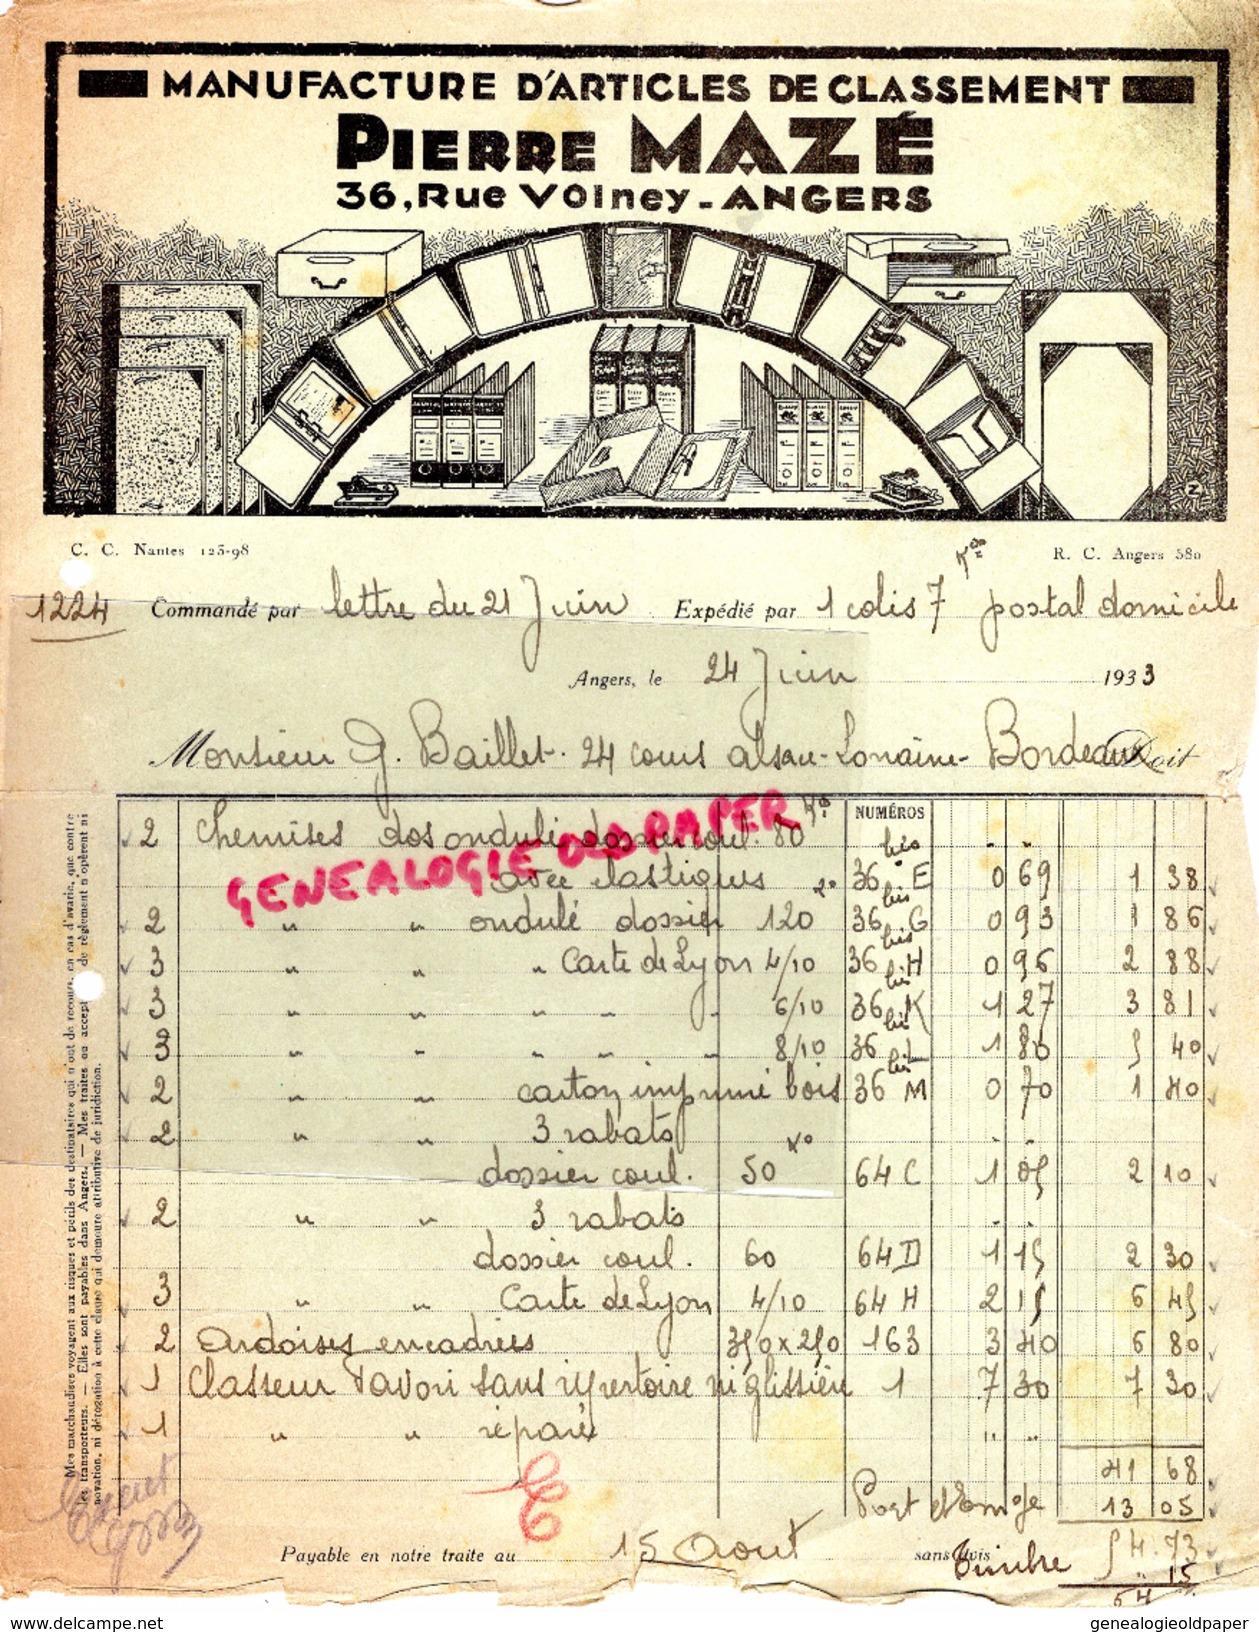 MANUFACTURE D'ARTICLES DE CLASSEMENT
PIERRE MAZÉ
36, Rue Volney - ANGERS
C. C. Nantes 125-98
R. C. Angers 580
1224 Commandé par lettre du 21 Juin Expédié par 1 colis 7 postal domicile
Angers, le 24 Juin 1933
Monsieur G. Baillet. 24 cours Alsace-Lorraine- Bordeaux Doit
NUMÉROS
2 Chemises dos ondulé dossier coul. 80
avec élastiques 36 bis E 0 69 1 38
2 " " ondulé dossier 120 36 bis G 0 93 1 86
3 " " " Carte de Lyon 4/10 36 bis H 0 96 2 88
3 " " " " " 6/10 36 bis K 1 27 3 81
3 " " " " " 8/10 36 bis L 1 80 5 40
2 " " carton imprimé bois 36 bis M 0 70 1 40
2 " " 3 rabats
dossier coul. 50 64 C 1 05 2 10
2 " " 3 rabats
dossier coul. 60 64 D 1 15 2 30
3 " " Carte de Lyon 4/10 64 H 2 15 6 45
2 Ardoises encadrées 350 x 250 163 3 40 6 80
1 Classeur Savori sans répertoire ni glissière 1 7 30 7 30
1 " " réparé " "
41 68
Port et Emge 13 05
Payable en notre traite au 15 Aout sans avis
54.73
Timbre " 15
54
Mes marchandises voyagent aux risques et périls des destinataires qui n'ont de recours, en cas d'avarie, que contre
les transporteurs. — Elles sont payables dans Angers. — Mes traites ou accept de règlement n'opèrent ni
novation, ni dérogation à cette clause qui demeure attributive de juridiction.
GENEALOGIE OLD PAPER
www.delcampe.net
genealogieoldpaper